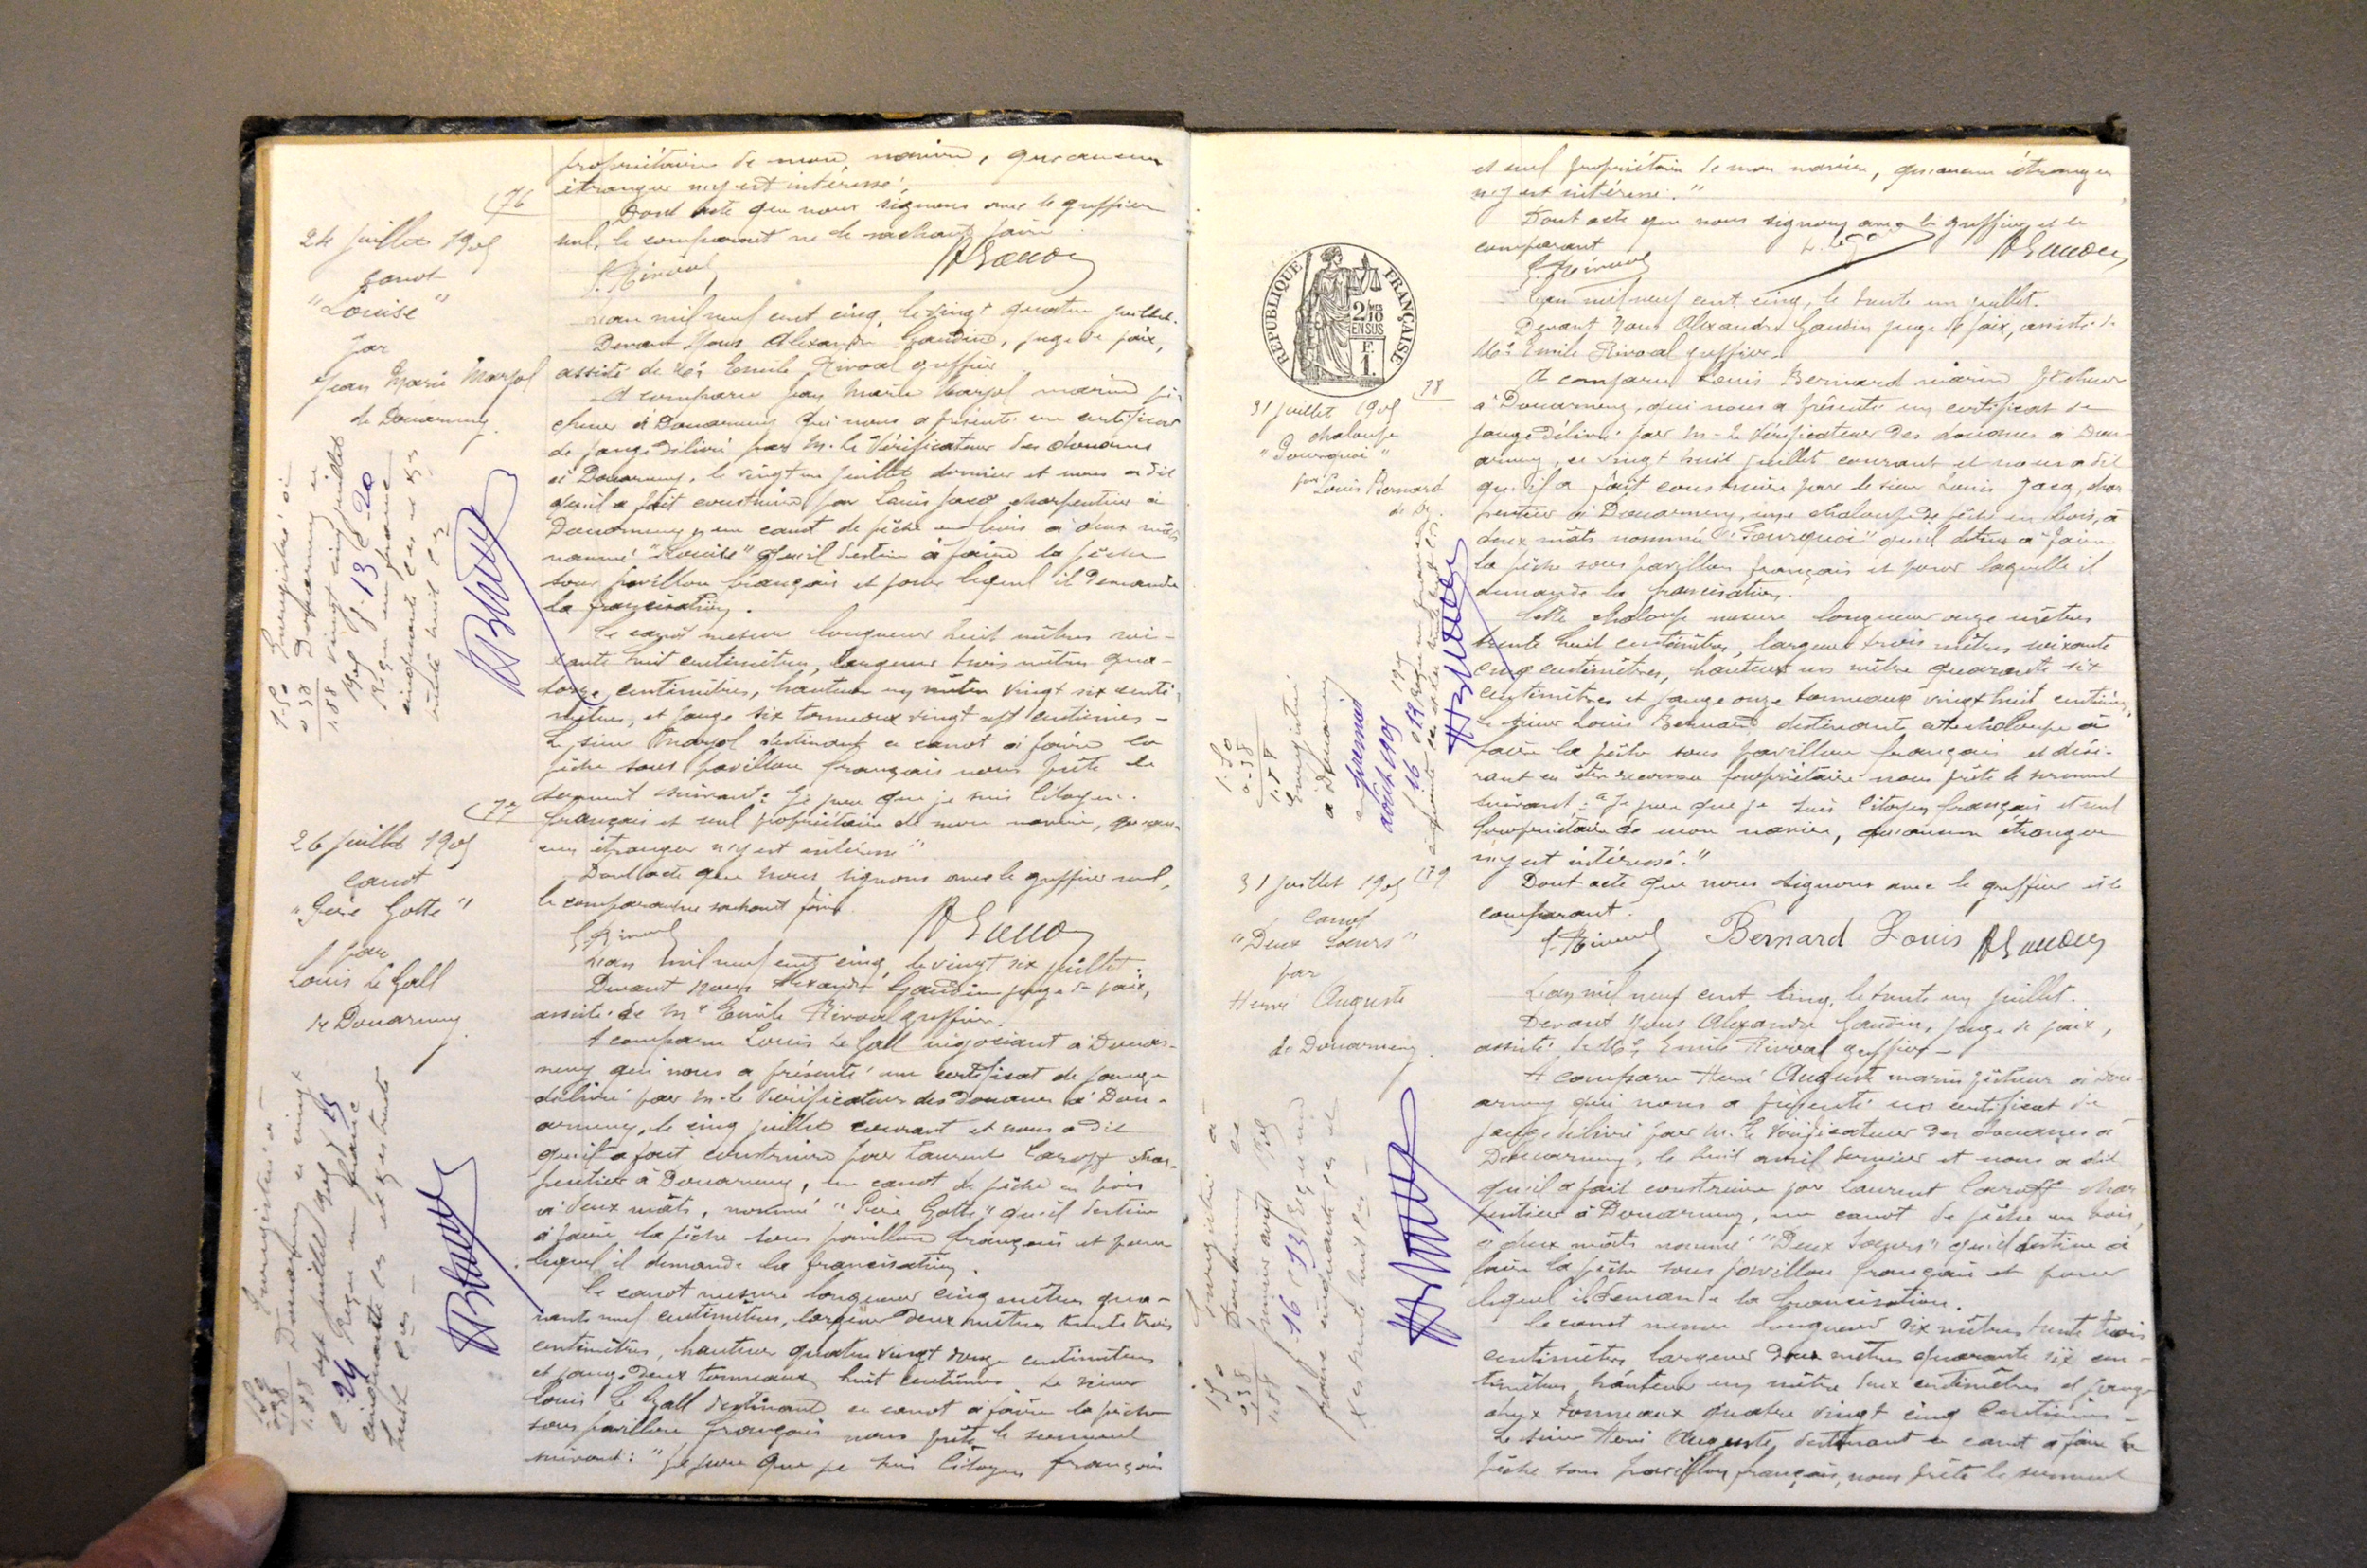 propriétaire de mon navire, qu'aucun
étranger n'y est intéressé.
Dont acte que nous signons avec le greffier
seul, le comparant ne le sachant faire
E. Rivoal
176
24 juillet 1905
canot
"Louise"
par
Jean Marie Marzol
de Douarnenez.
L'an mil neuf cent cinq, le vingt quatre juillet.
Devant Nous Alexandre Gaudin, juge de paix,
assisté de Me Emile Rivoal greffier
A comparu Jean Marie Marzol marin pê-
cheur à Douarnenez qui nous a présenté un certificat
de jauge délivré par M. le Vérificateur des douanes
à Douarnenez, le vingt un juillet dernier et nous a dit
qu'il a fait construire par Louis Jacq charpentier à
Douarnenez, un canot de pêche en bois à deux mâts
nommé "Louise" qu'il destine à faire la pêche
sous pavillon français et pour lequel il demande
la francisation.
Le canot mesure longueur huit mètres soi-
xante huit centimètres, largeur trois mètres qua-
torze centimètres, hauteur un mètre vingt six centi-
mètres, et jauge six tonneaux vingt sept centièmes -
Le sieur Marzol destinant ce canot à faire la
pêche sous pavillon français nous prête le
serment suivant: "Je jure que je suis citoyen
français et seul propriétaire de mon navire, qu'au-
cun étranger n'y est intéressé"
Dont acte que nous signons avec le greffier seul,
le comparant ne sachant faire.
E. Rivoal
Enregistré à
Douarnenez le
vingt cinq juillet
1905 f. 13 c. 20
Reçu un franc
cinquante ces et xes
trente huit ces
1.50
0 38
1.88
177
26 juillet 1905
canot
"Père Gotte"
par
Louis Le Gall
de Douarnenez.
L'an mil neuf cent cinq, le vingt six juillet.
Devant Nous Alexandre Gaudin juge de paix,
assisté de Me Emile Rivoal greffier.
A comparu Louis Le Gall négociant à Douar-
nenez qui nous a présenté un certificat de jauge
délivré par M. le Vérificateur des Douanes à Dou-
arnenez, le cinq juillet courant et nous a dit
qu'il a fait construire par Laurent Caroff char-
pentier à Douarnenez, un canot de pêche en bois
à deux mâts, nommé "Père Gotte" qu'il destine
à faire la pêche sous pavillon français et pour
lequel il demande la francisation.
Le canot mesure longueur cinq mètres qua-
rante neuf centimètres, largeur deux mètres trente trois
centimètres, hauteur quatre vingt douze centimètres
et jauge deux tonneaux huit centièmes Le sieur
Louis Le Gall destinant ce canot à faire la pêche
sous pavillon français nous prête le serment
suivant: "je jure que je suis Citoyen français
Enregistré à
Douarnenez le vingt
sept juillet 1905 f 15
c. 24 Reçu un franc
cinquante ces et xes trente
huit ces -
1.50
0.38
1.88
et seul propriétaire de mon navire, qu'aucun étranger
n'y est intéressé."
Dont acte que nous signons avec le greffier et le
comparant
E. Rivoal
RÉPUBLIQUE FRANÇAISE
2/10 EN SUS
F. 1.
178
31 juillet 1905
chaloupe
"Pourquoi"
par Louis Bernard
de Dz.
L'an mil neuf cent cinq, le trente un juillet.
Devant Nous Alexandre Gaudin juge de paix, assisté de
Me Emile Rivoal greffier.
A comparu Louis Bernard marin pêcheur
à Douarnenez, qui nous a présenté un certificat de
jauge délivré par M. le Vérificateur des douanes à Dou-
arnenez, le vingt huit juillet courant et nous a dit
qu'il a fait construire par le sieur Louis Jacq, char-
pentier à Douarnenez, une chaloupe de pêche en bois, à
deux mâts nommée "Pourquoi" qu'il destine à faire
la pêche sous pavillon français et pour laquelle il
demande la francisation.
Cette chaloupe mesure longueur onze mètres
trente huit centimètres, largeur trois mètres soixante
cinq centimètres, hauteur un mètre quarante six
centimètres et jauge onze tonneaux vingt huit centièmes,
Le sieur Louis Bernard destinant cette chaloupe à
faire la pêche sous pavillon français et dési-
rant en être reconnu propriétaire nous prête le serment
suivant: "Je jure que je suis Citoyen français et seul
propriétaire de mon navire, qu'aucun étranger
n'y est intéressé."
Dont acte que nous signons avec le greffier et le
comparant.
E. Rivoal Bernard Louis
1.50
0.38
1.88
Enregistré
à Douarnenez
le premier
août 1905
179
31 juillet 1905
Canot
"Deux Soeurs"
par
Hervé Auguste
de Douarnenez.
L'an mil neuf cent cinq, le trente un juillet.
Devant Nous Alexandre Gaudin, juge de paix,
assisté de Me Emile Rivoal greffier -
A comparu Hervé Auguste marin pêcheur à Dou-
arnenez qui nous a présenté un certificat de
jauge délivré par M. le Vérificateur des douanes à
Douarnenez, le huit avril dernier et nous a dit
qu'il a fait construire par Laurent Caroff char-
pentier à Douarnenez, un canot de pêche en bois,
à deux mâts nommé "Deux Soeurs" qu'il destine à
faire la pêche sous pavillon français et pour
lequel il demande la francisation.
Le canot mesure longueur six mètres trente trois
centimètres largeur deux mètres quarante six cen-
timètres, hauteur un mètre deux centimètres et jauge
deux tonneaux quatre vingt cinq centièmes -
Le sieur Hervé Auguste, destinant ce canot à faire la
pêche sous pavillon français, nous prête le serment
Enregistré à
Douarnenez le
premier août 1905
f. 16 c. 13 Reçu un
franc cinquante ces et
xes trente huit ces -
1.50
0.38
1.88